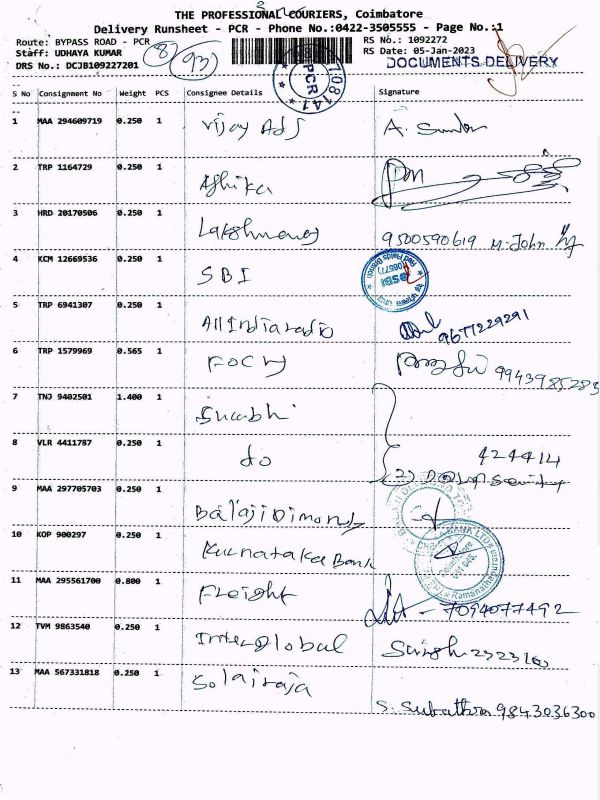 THE PROFESSIONAL COURIERS, Coimbatore
Delivery Runsheet - PCR - Phone No.:0422-3505555 - Page No.:1
Route: BYPASS ROAD - PCR
RS No.: 1092272
Staff: UDHAYA KUMAR
RS Date: 05-Jan-2023
DRS No.: DCJB109227201
DOCUMENTS DELIVERY
PCR
S No Consignment No Weight PCS Consignee Details Signature
1 MAA 294609719 0.250 1 Vijay Ads
2 TRP 1164729 0.250 1
3 HRD 20170506 0.250 1
9500590619 M. John
4 KCM 12669536 0.250 1 SBI
SBI
5 TRP 6941307 0.250 1 All India radio
9677229291
6 TRP 1579969 0.565 1
9943985283
7 TNJ 9402501 1.400 1
8 VLR 4411787 0.250 1 do
424414
9 MAA 297705703 0.250 1 Balaji Dimonds
10 KOP 900297 0.250 1 Karnataka Bank
11 MAA 295561700 0.800 1 Freight
7094077492
12 TVM 9863540 0.250 1 Inter Global
13 MAA 567331818 0.250 1 Solairaja
S. Subathra 9843036300